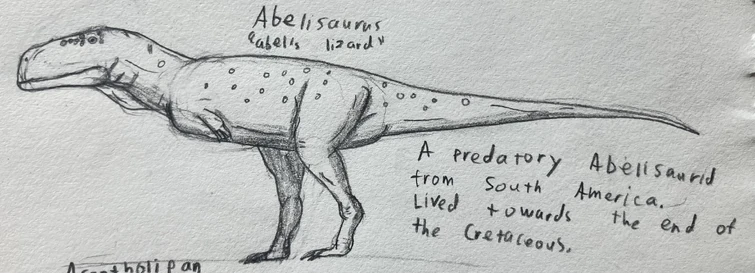 Abelisaurus
"abel's lizard"
A predatory Abelisaurid
from South America.
Lived towards the end of
the Cretaceous.
Acantholipan